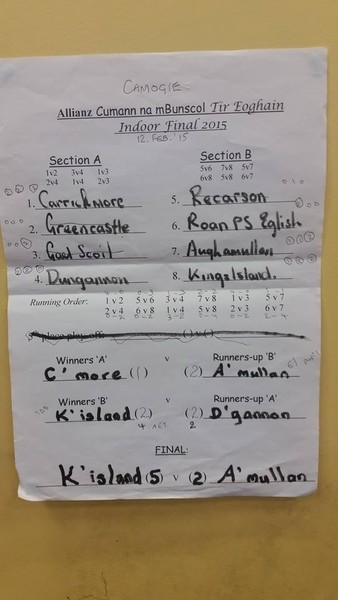 CAMOGIE
Allianz Cumann na mBunscol Tir Eoghain
Indoor Final 2015
12. FEB. '15
Section A Section B
1v2 3v4 1v3 5v6 7v8 5v7
2v4 1v4 2v3 6v8 5v8 6v7
1. Carrickmore 5. Recarson
2. Greencastle 6. Roan PS Eglish
3. Gael Scoil 7. Aughamullan
4. Dungannon 8. Kingsisland.
Running Order: 1 v 2 5 v 6 3 v 4 7 v 8 1 v 3 5 v 7
2 v 4 6 v 8 1 v 4 5 v 8 2 v 3 6 v 7
Winners 'A' v Runners-up 'B'
C'more (1) (2) A'mullan
Winners 'B' v Runners-up 'A'
K'island (2) (2) D'gannon
4 2
FINAL:
K'island (5) v (2) A'mullan